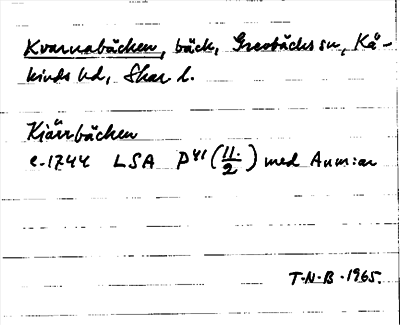 Kvarnabäcken, bäck, Gresbäcks sn, Kå-
kinds hd, Skar l.
Kiärrbäcken
c. 1744 LSA P41 (11:2) med Anm:ar
T-N-B -1965.